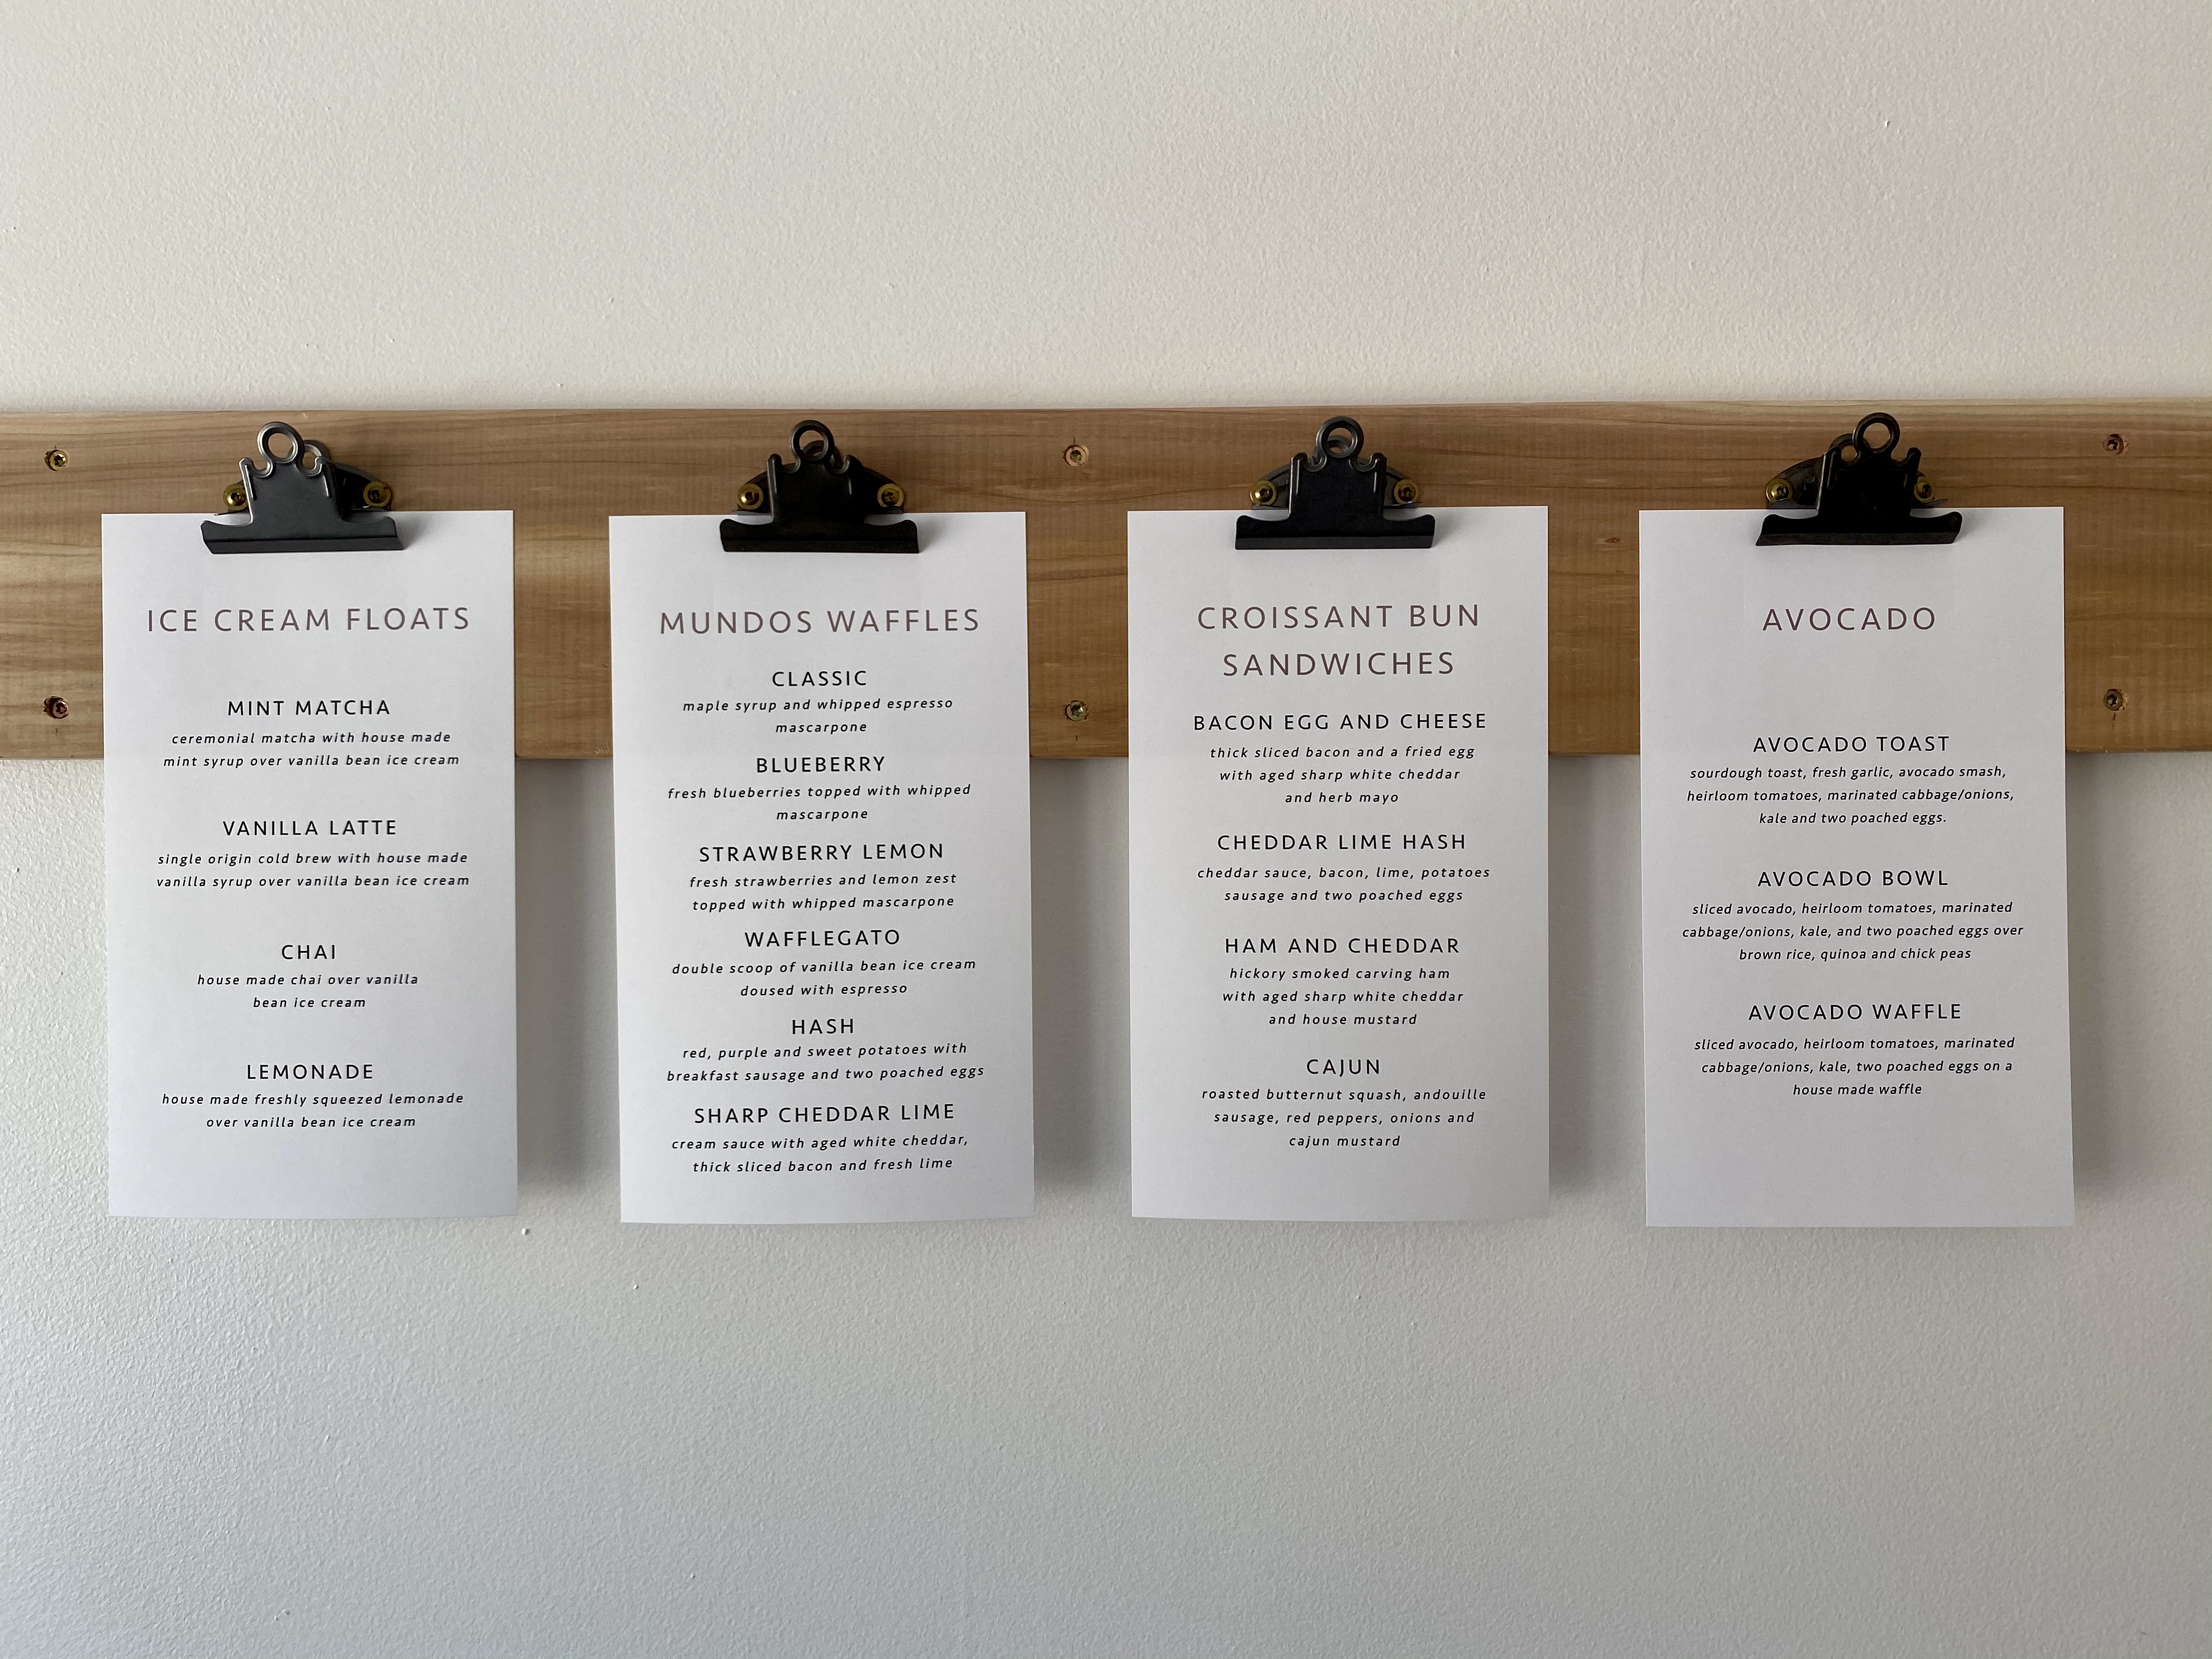 ICE CREAM FLOATS
MINT MATCHA
ceremonial matcha with house made
mint syrup over vanilla bean ice cream
VANILLA LATTE
single origin cold brew with house made
vanilla syrup over vanilla bean ice cream
CHAI
house made chai over vanilla
bean ice cream
LEMONADE
house made freshly squeezed lemonade
over vanilla bean ice cream
MUNDOS WAFFLES
CLASSIC
maple syrup and whipped espresso
mascarpone
BLUEBERRY
fresh blueberries topped with whipped
mascarpone
STRAWBERRY LEMON
fresh strawberries and lemon zest
topped with whipped mascarpone
WAFFLEGATO
double scoop of vanilla bean ice cream
doused with espresso
HASH
red, purple and sweet potatoes with
breakfast sausage and two poached eggs
SHARP CHEDDAR LIME
cream sauce with aged white cheddar,
thick sliced bacon and fresh lime
CROISSANT BUN
SANDWICHES
BACON EGG AND CHEESE
thick sliced bacon and a fried egg
with aged sharp white cheddar
and herb mayo
CHEDDAR LIME HASH
cheddar sauce, bacon, lime, potatoes
sausage and two poached eggs
HAM AND CHEDDAR
hickory smoked carving ham
with aged sharp white cheddar
and house mustard
CAJUN
roasted butternut squash, andouille
sausage, red peppers, onions and
cajun mustard
AVOCADO
AVOCADO TOAST
sourdough toast, fresh garlic, avocado smash,
heirloom tomatoes, marinated cabbage/onions,
kale and two poached eggs.
AVOCADO BOWL
sliced avocado, heirloom tomatoes, marinated
cabbage/onions, kale, and two poached eggs over
brown rice, quinoa and chick peas
AVOCADO WAFFLE
sliced avocado, heirloom tomatoes, marinated
cabbage/onions, kale, two poached eggs on a
house made waffle